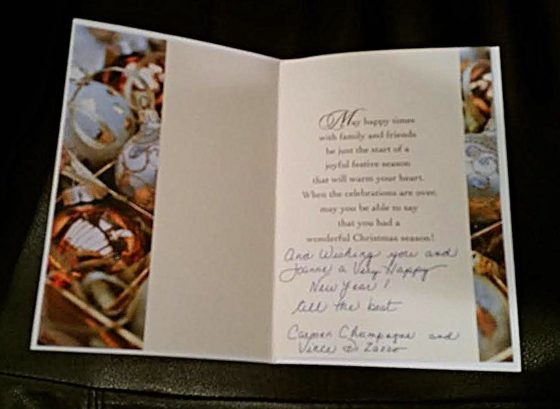 May happy times
with family and friends
be just the start of a
joyful festive season
that will warm your heart.
When the celebrations are over,
may you be able to say
that you had a
wonderful Christmas season!
And Wishing you and
Joanne a Very Happy
New Year!
all the best
Carmen Champagne and
Di Zazzo